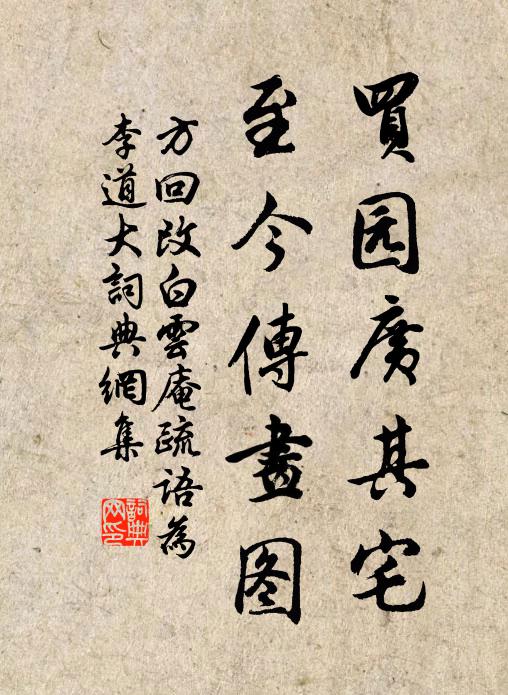 買园廣其宅
至今傳畫图
方回改白雲庵疏語為
李道大詞典網集
詞典网印